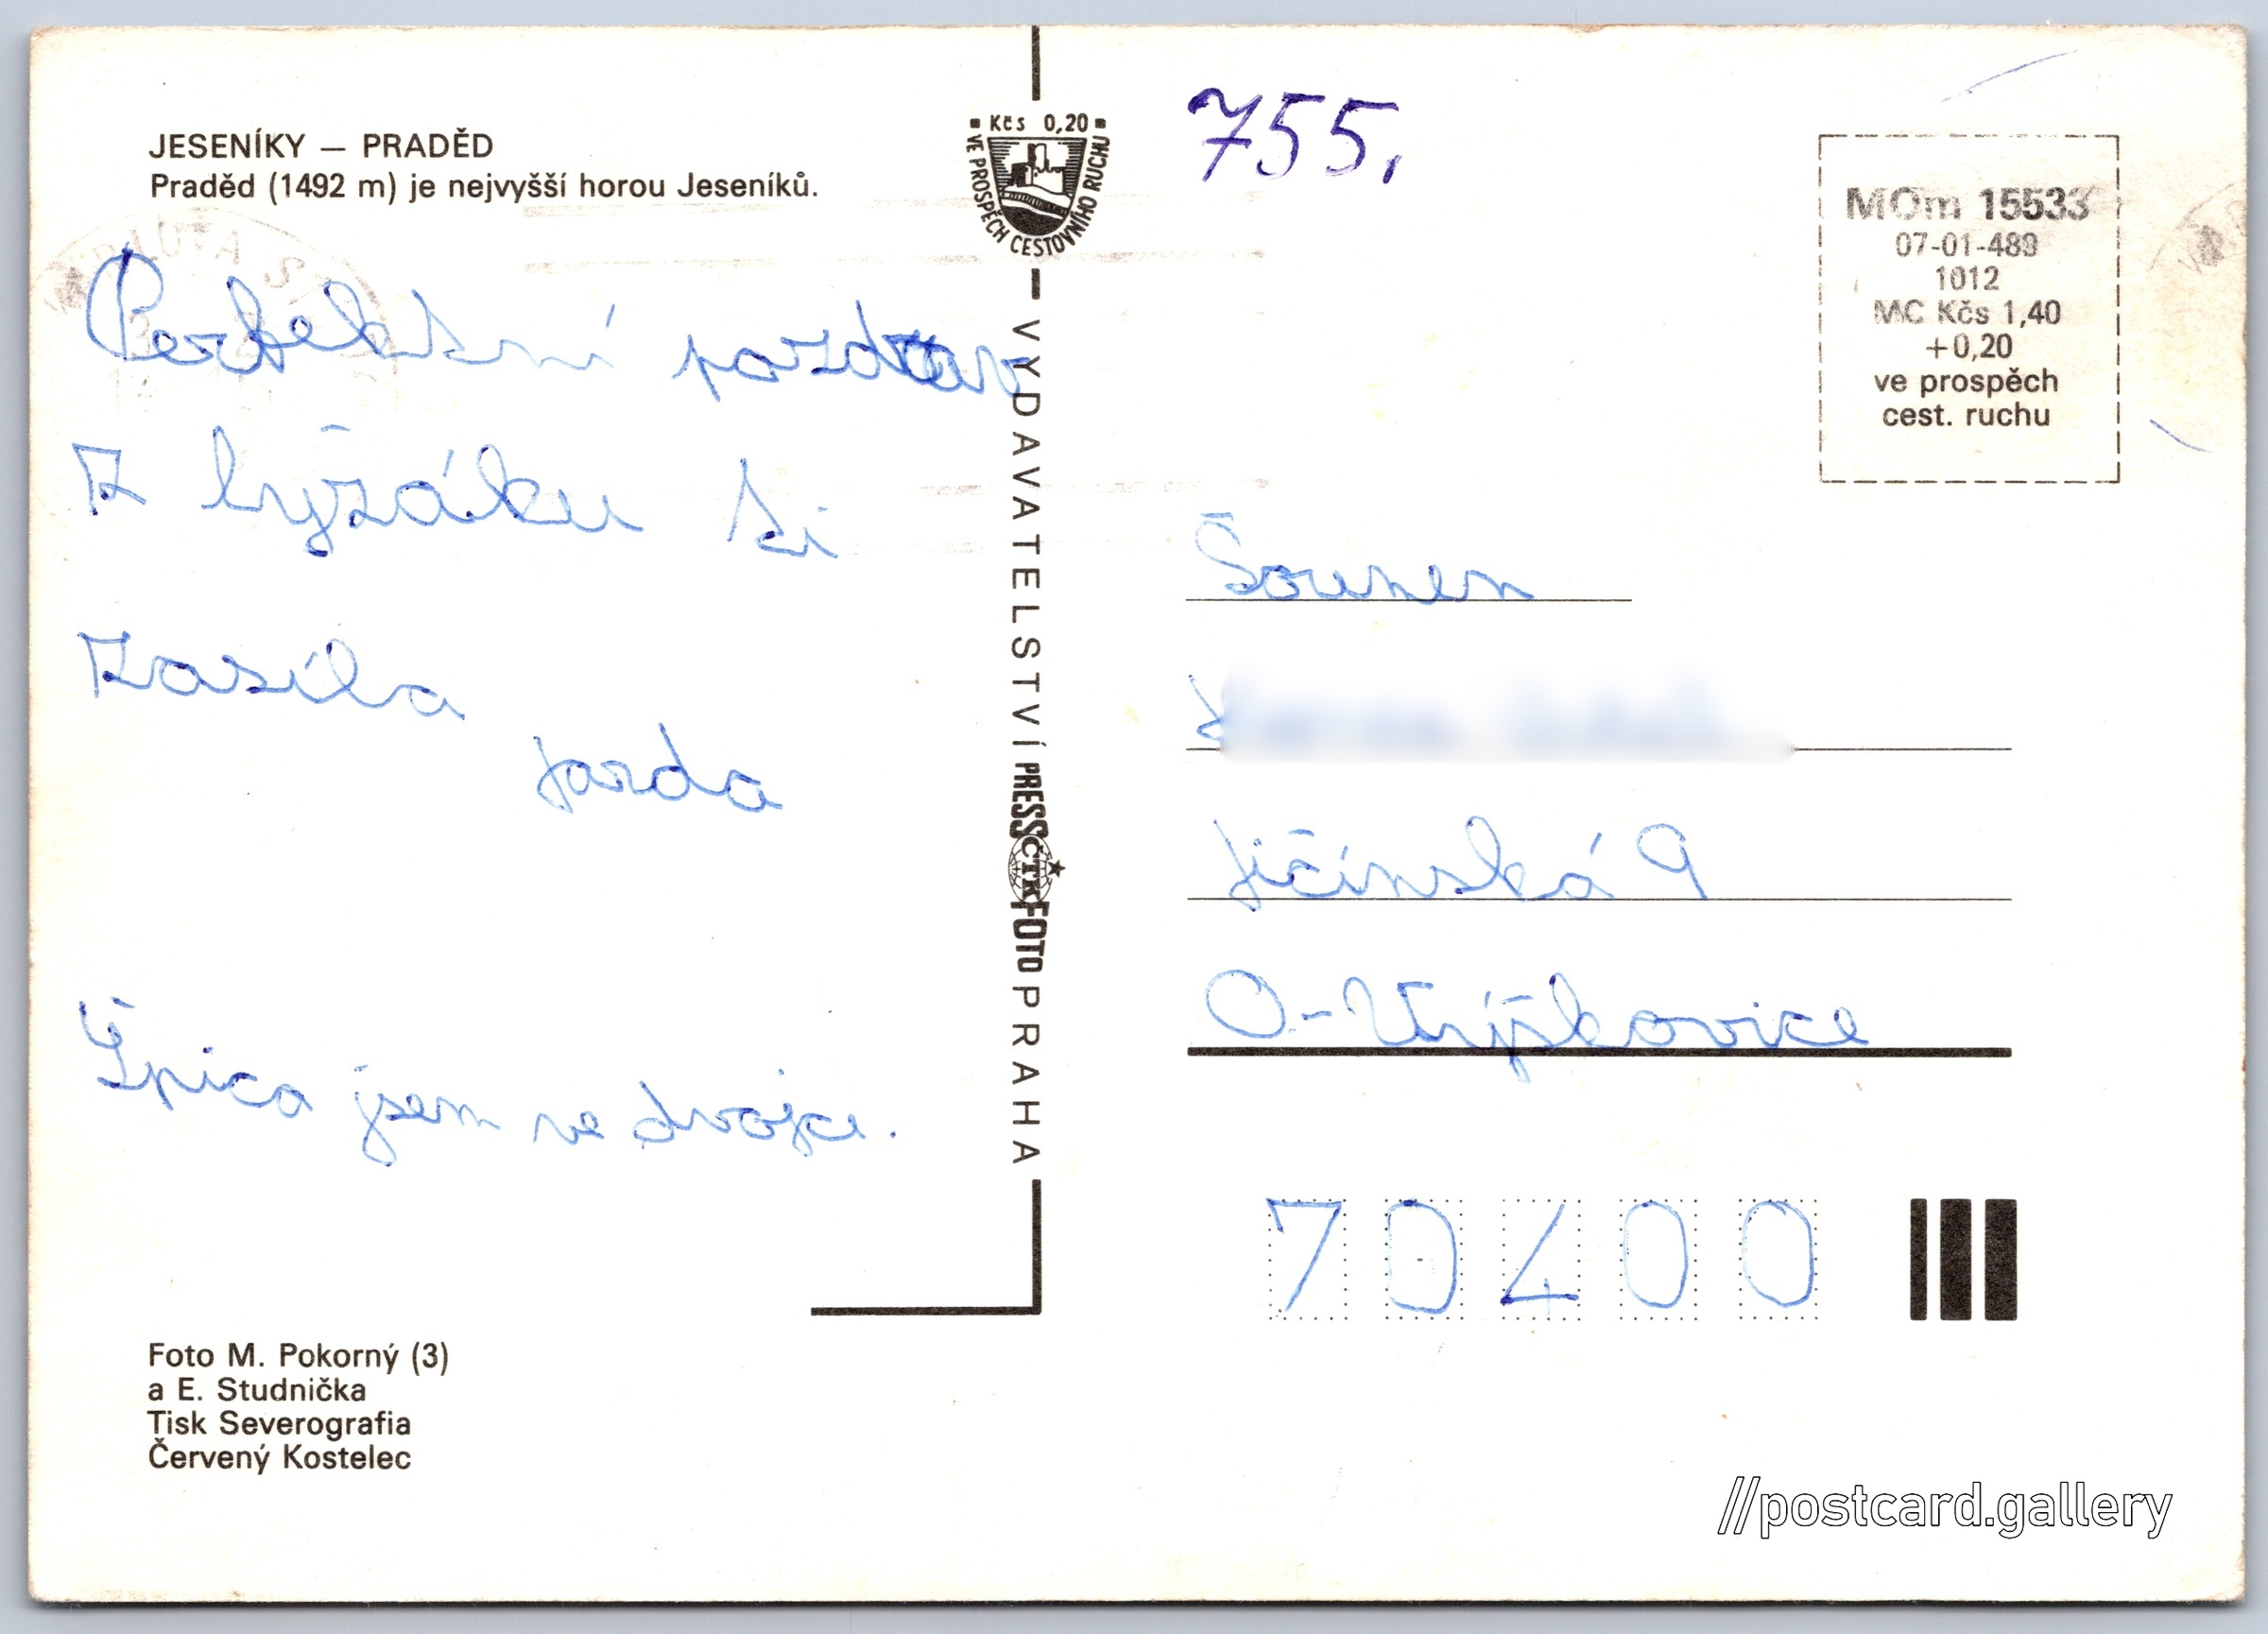 JESENÍKY — PRADĚD
Praděd (1492 m) je nejvyšší horou Jeseníků.
Perfektní pozdrav
Z lyžáku Ti
Zasílá
Jarda
Špica jsem ve dvojce.
Foto M. Pokorný (3)
a E. Studnička
Tisk Severografia
Červený Kostelec
Kčs 0,20
VE PROSPĚCH CESTOVNÍHO RUCHU
VYDAVATELSTVÍ PRESSČTKFOTO PRAHA
755,
MOm 15533
07-01-489
1012
MC Kčs 1,40
+0,20
ve prospěch
cest. ruchu
Jičínská 9
O-Výškovice
70400
//postcard.gallery